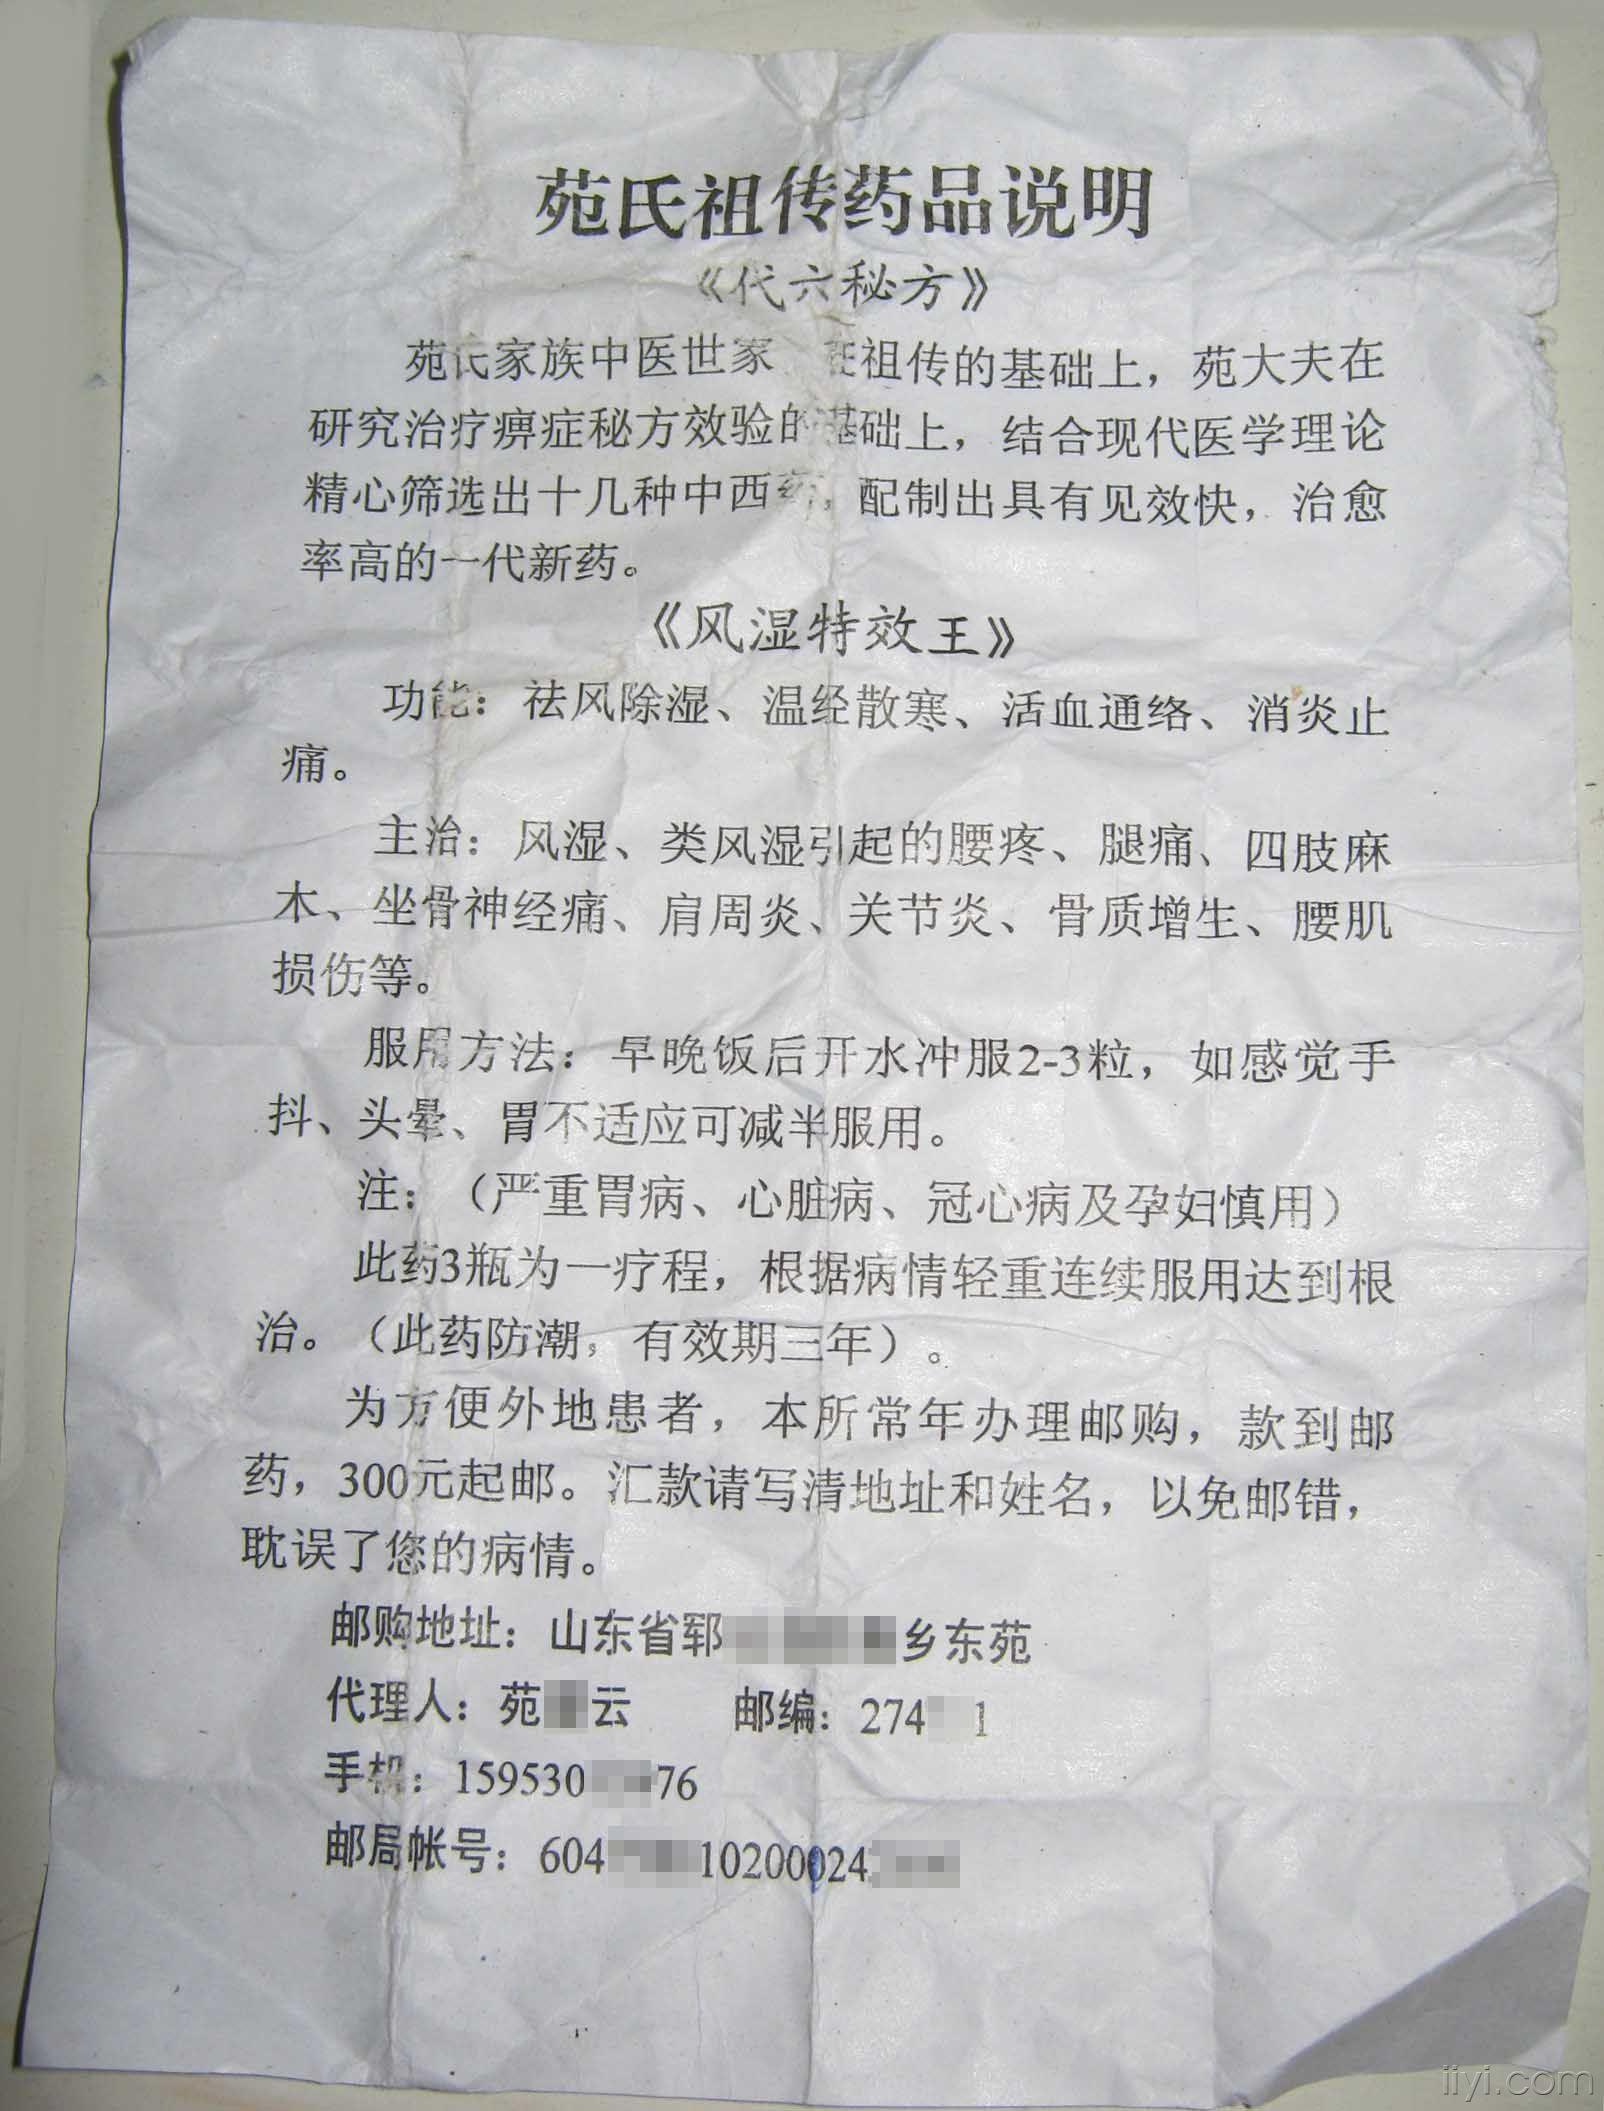 苑氏祖传药品说明
《代六秘方》
苑氏家族中医世家 在祖传的基础上，苑大夫在
研究治疗痹症秘方效验的基础上，结合现代医学理论
精心筛选出十几种中西药，配制出具有见效快，治愈
率高的一代新药。
《风湿特效王》
功能：祛风除湿、温经散寒、活血通络、消炎止
痛。
主治：风湿、类风湿引起的腰疼、腿痛、四肢麻
木、坐骨神经痛、肩周炎、关节炎、骨质增生、腰肌
损伤等。
服用方法：早晚饭后开水冲服2-3粒，如感觉手
抖、头晕、胃不适应可减半服用。
注：（严重胃病、心脏病、冠心病及孕妇慎用）
此药3瓶为一疗程，根据病情轻重连续服用达到根
治。（此药防潮，有效期三年）。
为方便外地患者，本所常年办理邮购，款到邮
药，300元起邮。汇款请写清地址和姓名，以免邮错，
耽误了您的病情。
邮购地址：山东省郓 乡东苑
代理人：苑 云 邮编：274 1
手机：159530 76
邮局帐号：604 10200024
iiyi.com